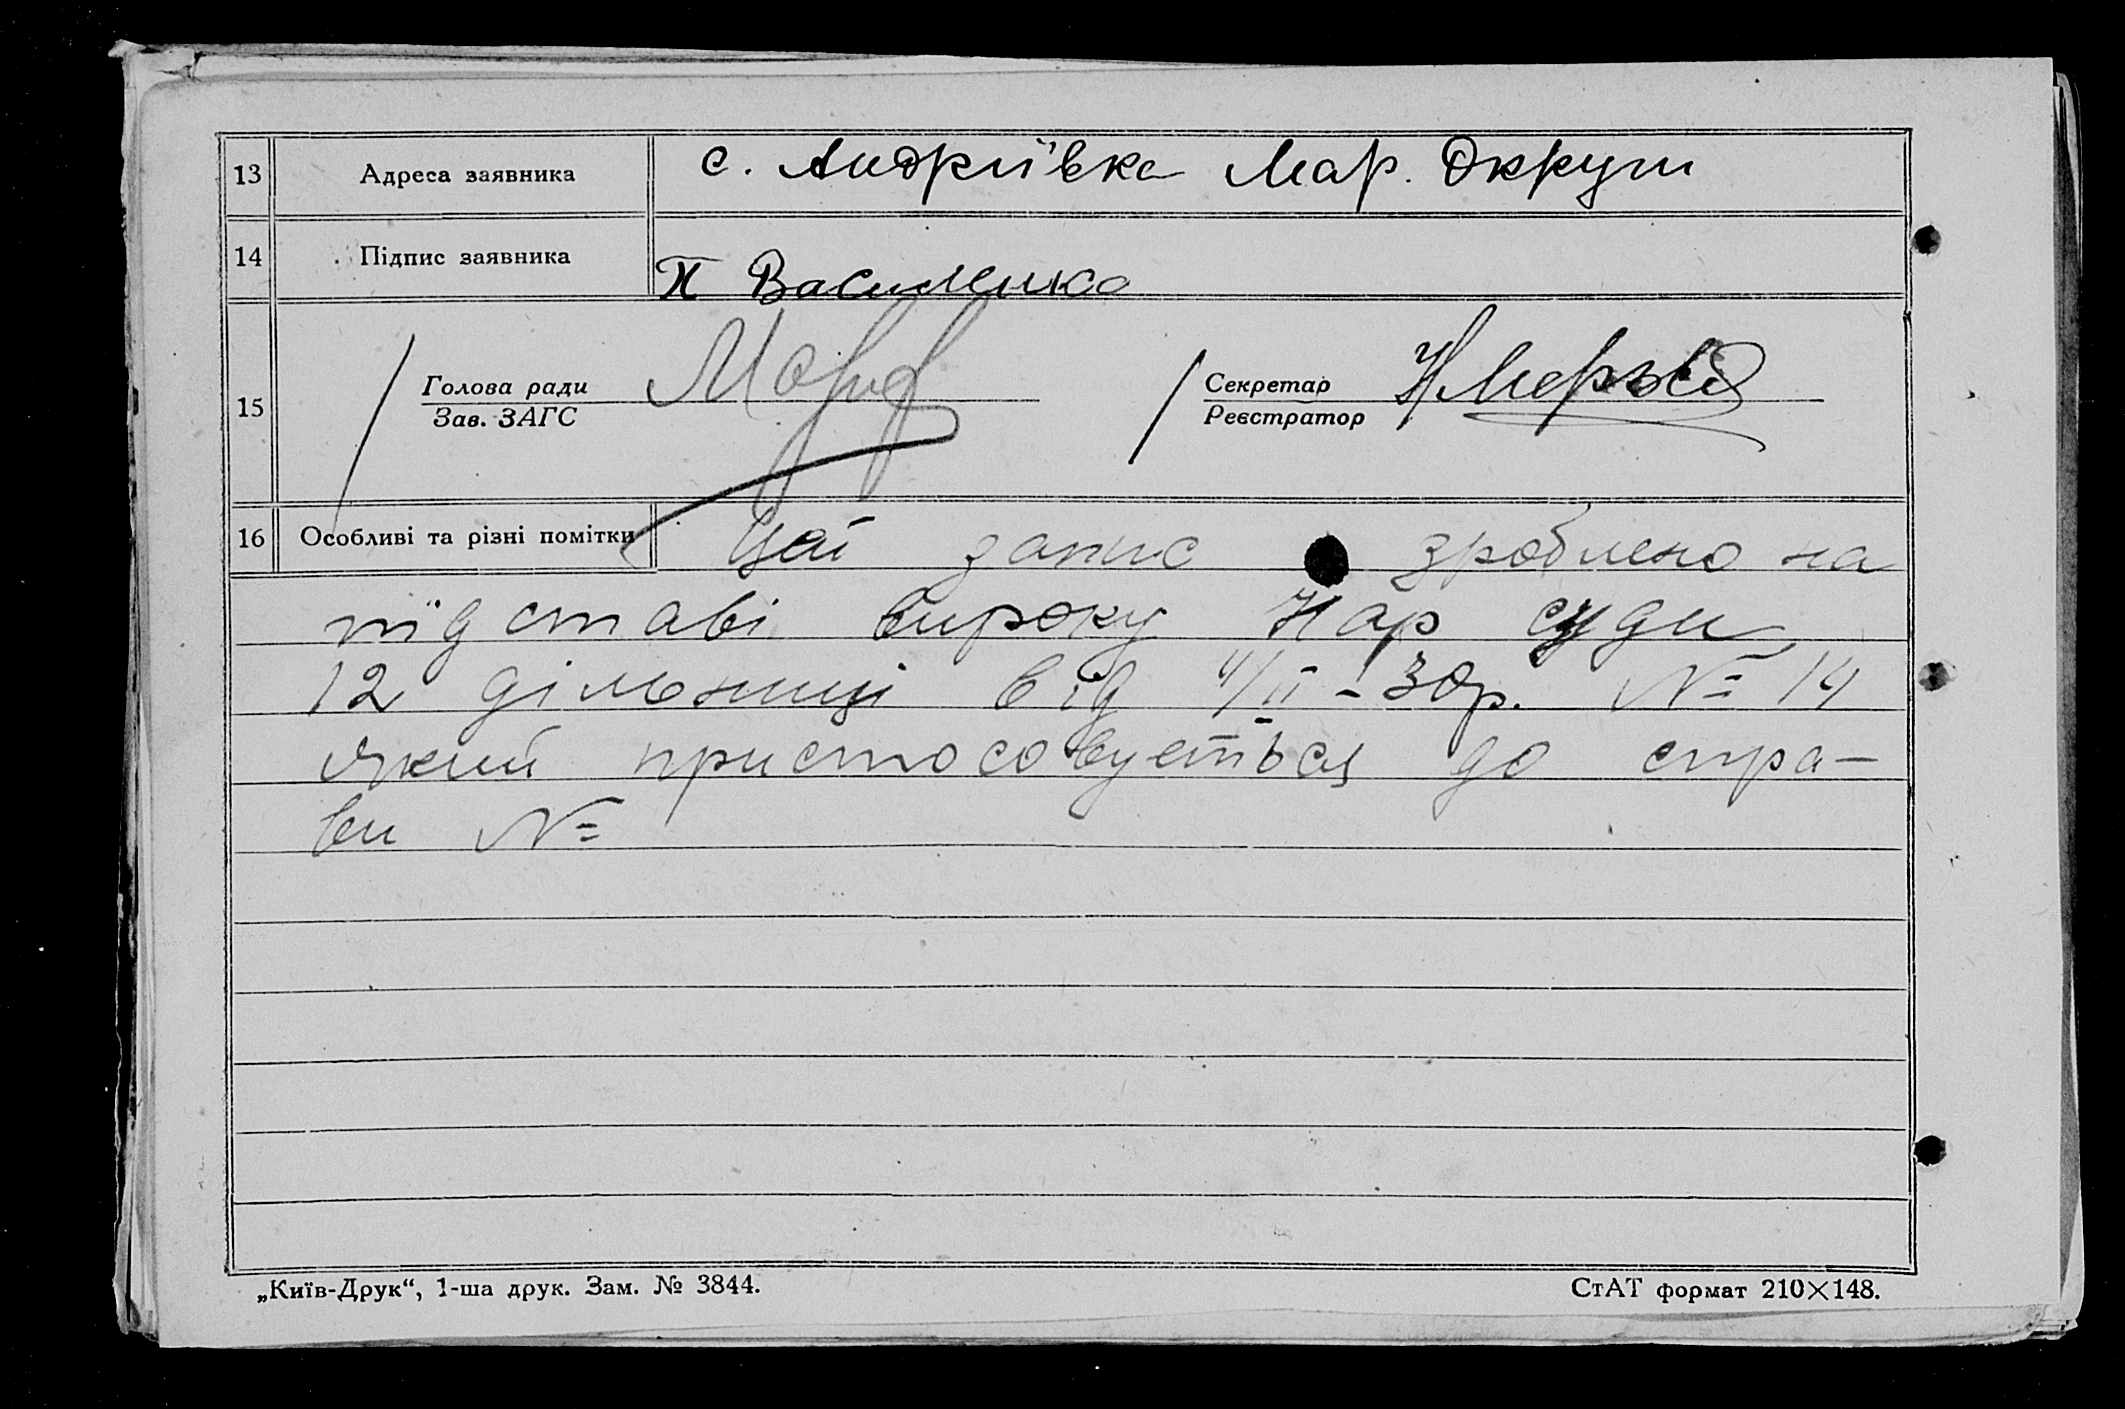 13 Адреса заявника с. Андріївка Мар. Округи
14 Підпис заявника П Василенко
15 Голова ради Секретар
Зав. ЗАГС Реєстратор
16 Особливі та різні помітки Цей запис зроблено на
підставі вироку Нар суди
12 дільниці від 4/II-30р. № 14
який пристосовується до спра-
ви №
„Київ-Друк“, 1-ша друк. Зам. № 3844. СтАТ формат 210×148.